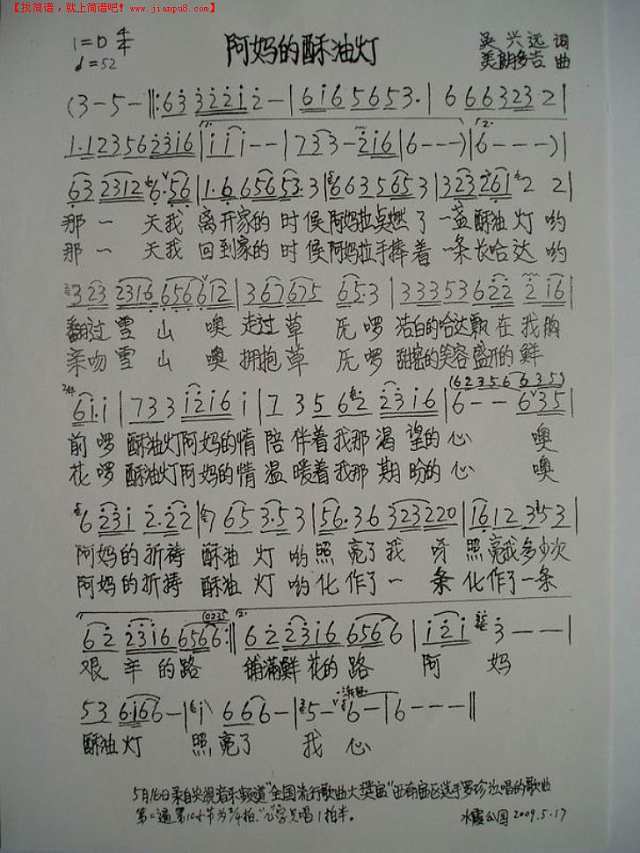 【找简谱，就上简谱吧！www.jianpu8.com】
1=D 4/4
阿妈的酥油灯
吴兴远 词
♩=52
美朗多吉 曲
(3-5-‖:63 3221 2-|6i65653.|6663232|
1·123562316|iii--|733-2i6|6---)|6---)|
632312 6·56|1·665653·3|66355653|323261 2 2|
那一天我 离开家的时候阿妈拉点燃了一盏酥油灯哟
那一天我 回到家的时候阿妈拉手捧着一条长哈达哟
323 2316 656612|367675 65·3|33353622 2i6|
翻过雪山 噢 走过草 原啰 洁白的哈达飘在我胸
亲吻雪山 噢 拥抱草 原啰 甜蜜的笑容盛开的鲜
(62356635)
6i·i|733i2i6i|73562 2316|6--635|
前啰 酥油灯阿妈的情 陪伴着我那渴望的心 噢
花啰 酥油灯阿妈的情 温暖着我那期盼的心 噢
6 231 2·22|7653·53|56·36323220|1612353|
阿妈的祈祷 酥油灯哟照亮了我呀 照亮我多少次
阿妈的祈祷 酥油灯哟化作了一条 化作了一条
(0235)
62 2316 6566:‖62 2316 6566|i2i 3---|
艰辛的路 铺满鲜花的路 阿妈
53 6·i66-|i\ 666-|5-6-|6---‖
酥油灯 照亮了 我心
5月16日来自央视音乐频道"全国流行歌曲大奖赛"西南赛区选手罗珍汝唱的歌曲
第二遍第10小节为3/4拍,"心"字只唱1拍半.
水霞公园 2009.5.17